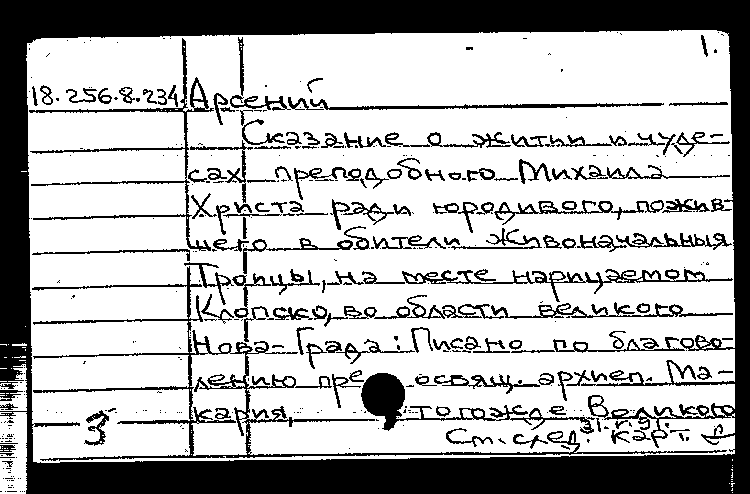 1.
18.256.8.234. Арсений
Сказание о житьи и чуде-
сах преподобного Михаила
Христа ради юродивого, пожив-
шего в обители Живоначальныя
Троицы, на месте нарицаемом
Клопско, во области великого
Нова-Града: Писано по благово-
лению пре освящ. архиеп. Ма-
кария, тогожде Великого
3
См. след. карт.